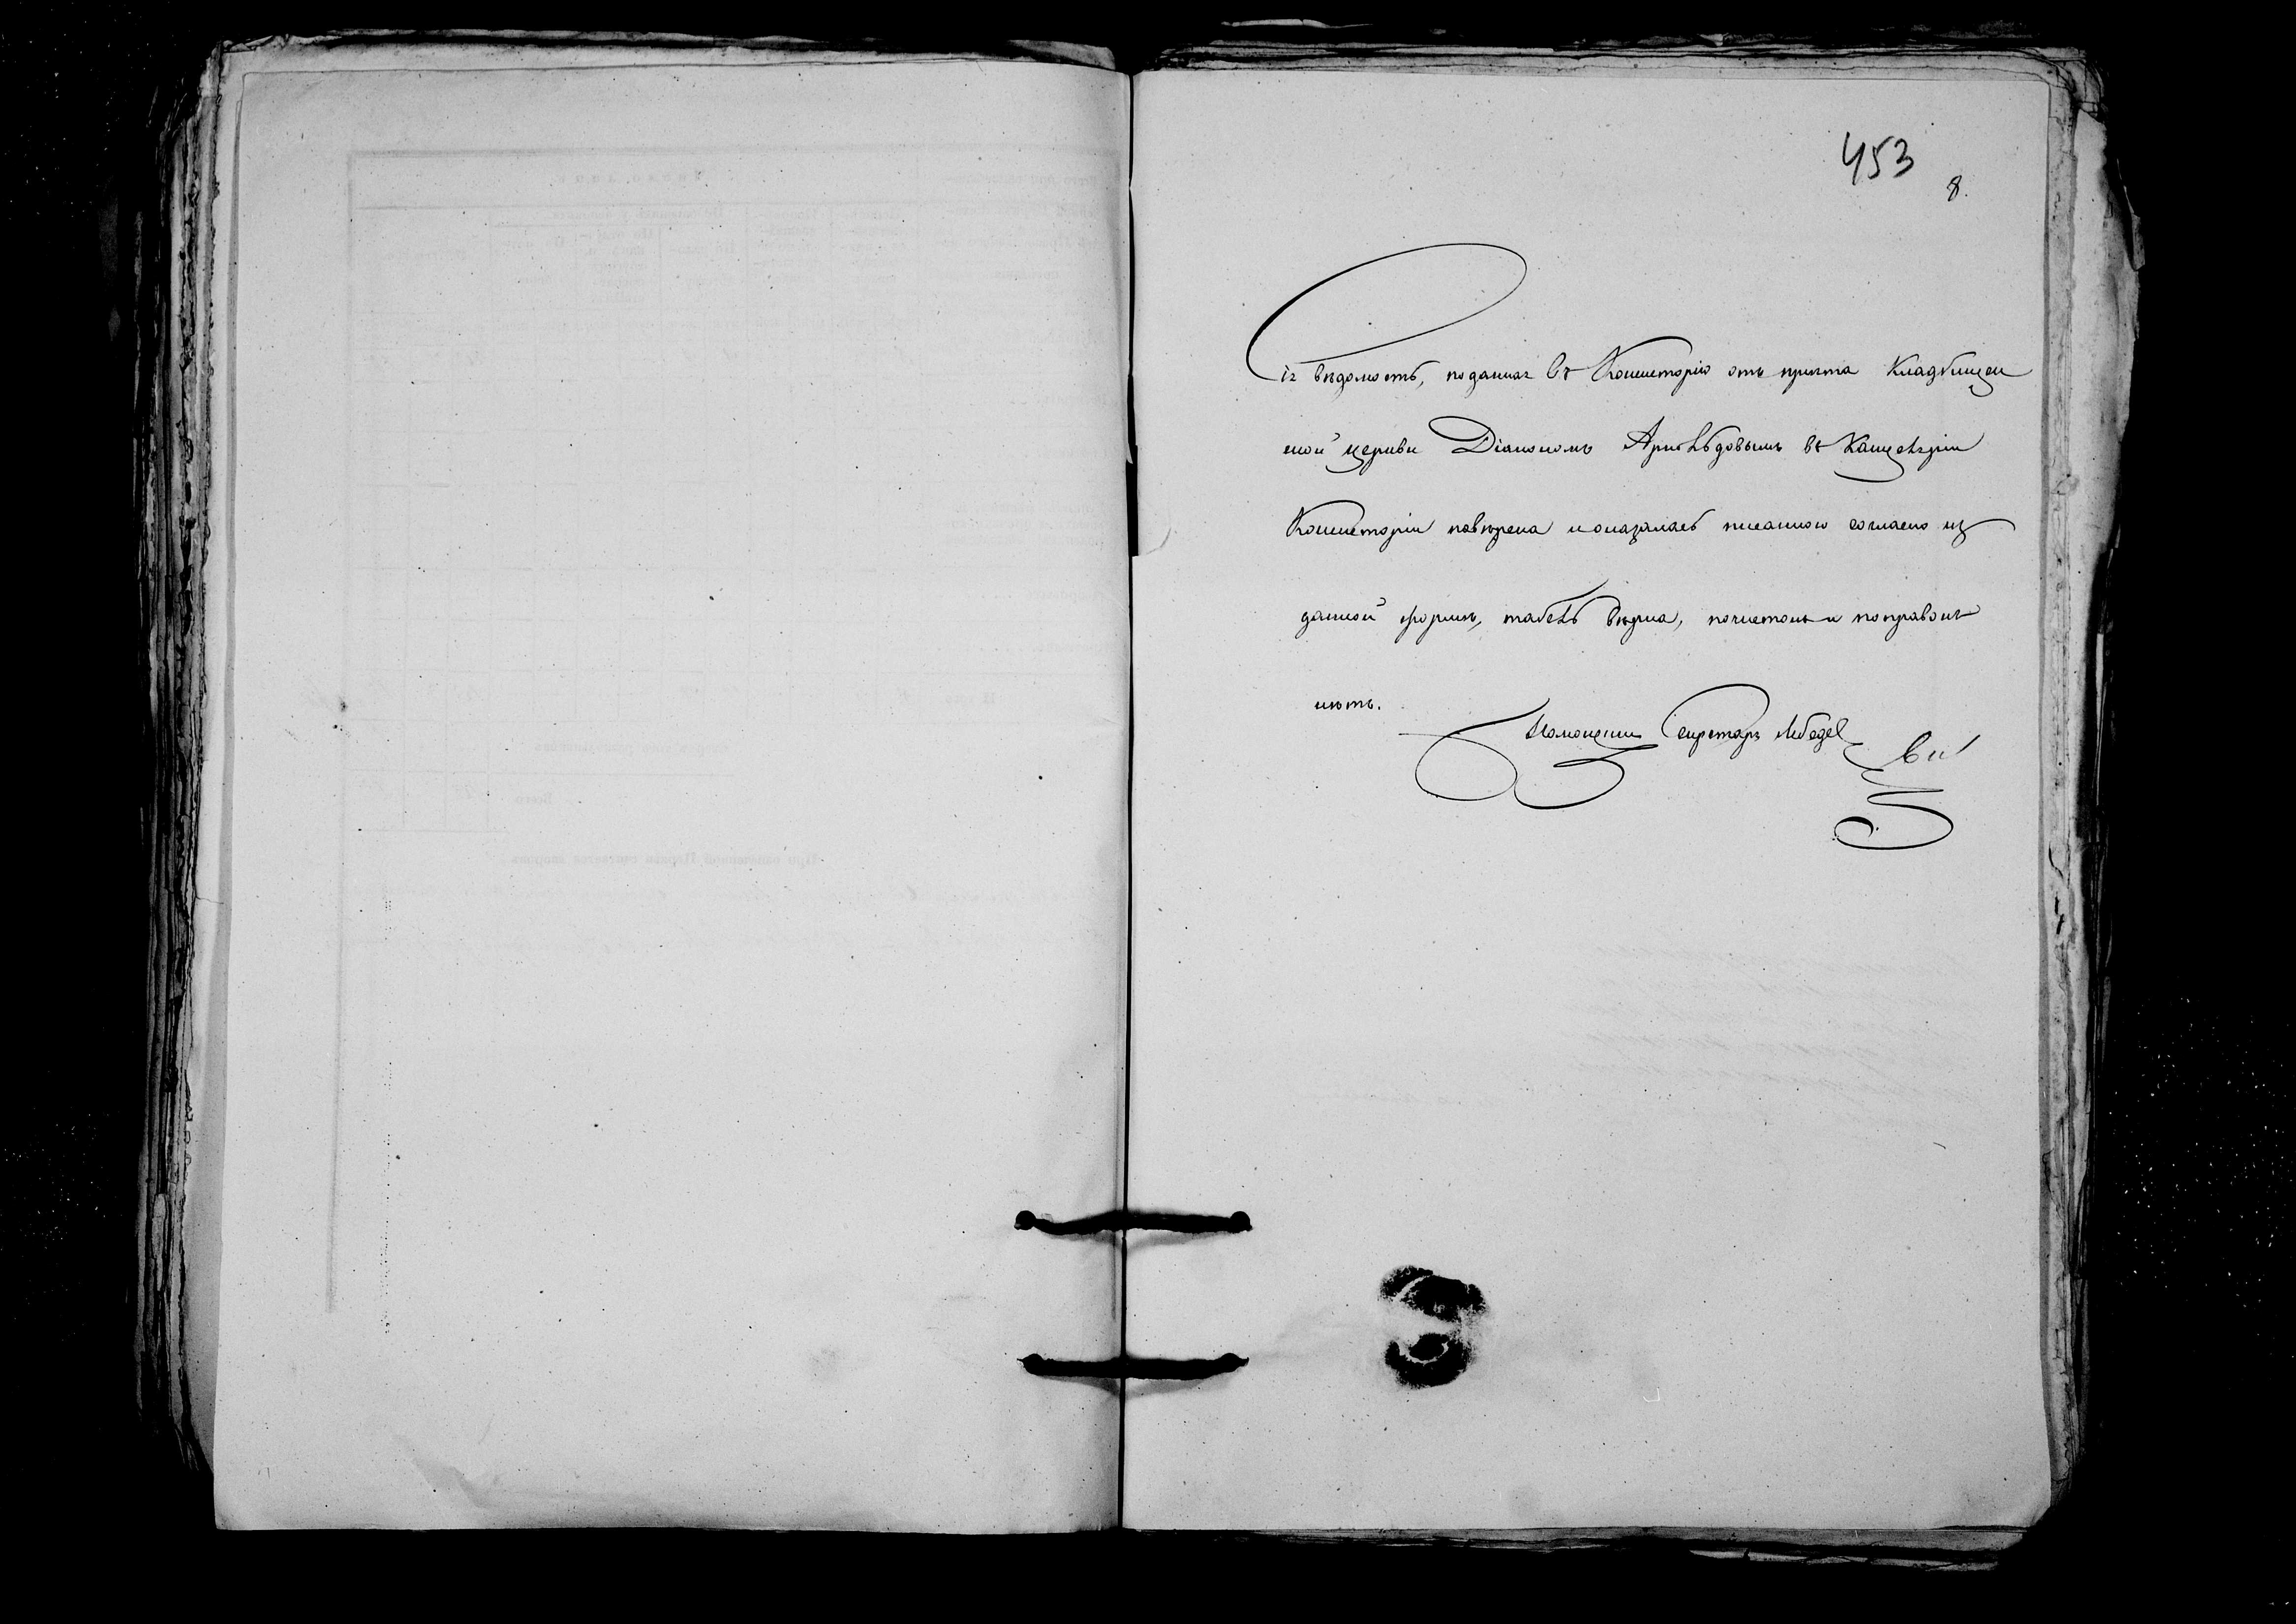 453
8.
Сія вѣдомость, поданная въ Консисторію отъ причта Кладбищен
ской церкви Діакономъ въ Канцеляріи
Консисторіи повѣрена и оказалась писанною согласно из
данной формѣ, табель вѣрна, почистокъ и поправокъ
нѣтъ.
Помощник Секретаря Лебедев